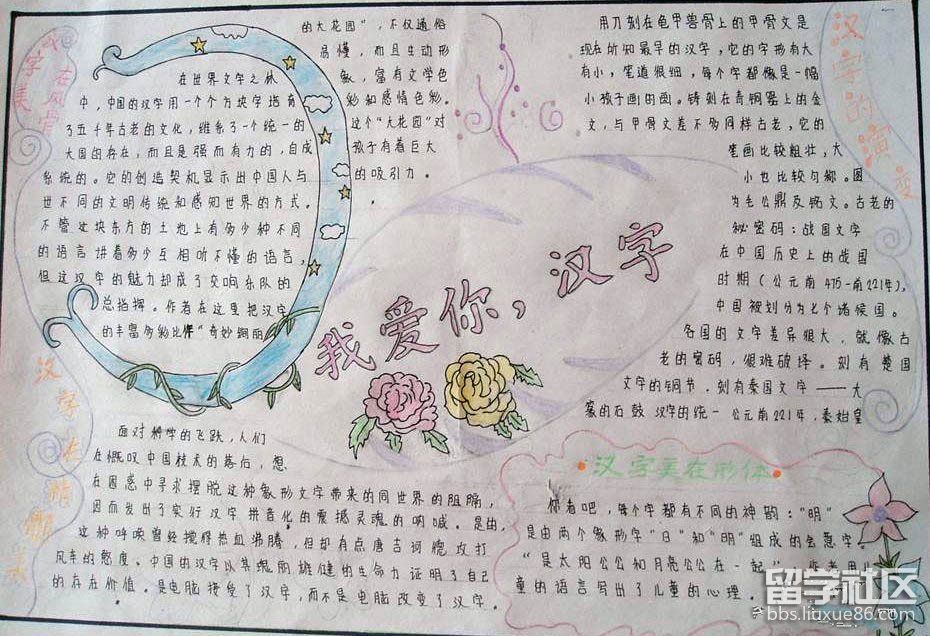 在世界文字之林
中，中国的汉字用一个个方块字培育
了五千年古老的文化，维系了一个统一的
大国的存在，而且是强而有力的，自成
系统的。它的创造契机显示出中国人与
世不同的文明传统和感知世界的方式。
不管这块东方的土地上有多少种不同
的语言讲着多少互相听不懂的语言，
但这汉字的魅力却成了交响乐队的
总指挥。作者在这里把汉字
的丰富多彩比作“奇妙绚丽
的大花园”，不仅通俗
易懂，而且生动形
象，富有文学色
彩和感情色彩。
这个“大花园”对
孩子有着巨大
的吸引力。
我爱你，汉字
汉字的演变
用刀刻在龟甲兽骨上的甲骨文是
现在所知最早的汉字，它的字形有大
有小，笔道很细，每个字都像是一幅
小孩子画的画。铸刻在青铜器上的金
文，与甲骨文差不多同样古老，它的
笔画比较粗壮，大
小也比较匀称。图
为毛公鼎及铭文。古老的
秘密码：战国文字
在中国历史上的战国
时期（公元前475—前221年），
中国被划分为七个诸侯国。
各国的文字差异很大，就像古
老的密码，很难破译。刻有楚国
文字的铜节．刻有秦国文字——大
篆的石鼓 汉字的统一 公元前221年，秦始皇
面对科学的飞跃，人们
在慨叹中国技术的落后，想
在困惑中寻求摆脱这种象形文字带来的同世界的阻隔，
因而发出了实行汉字拼音化的震撼灵魂的呐喊。是由
这种呼唤曾经搅得热血沸腾，但却有点唐吉诃德攻打
风车的憨度。中国的汉字以其瑰丽雄健的生命力证明了自己
的存在价值。是电脑接受了汉字，而不是电脑改变了汉字。
汉字美在形体
你看吧，每个字都有不同的神韵：“明”
是由两个象形字“日”和“明”组成的会意字。
“是太阳公公和月亮公公在一起”，作者用儿
童的语言写出了儿童的心理。
留学社区
bbs.liuxue86.com